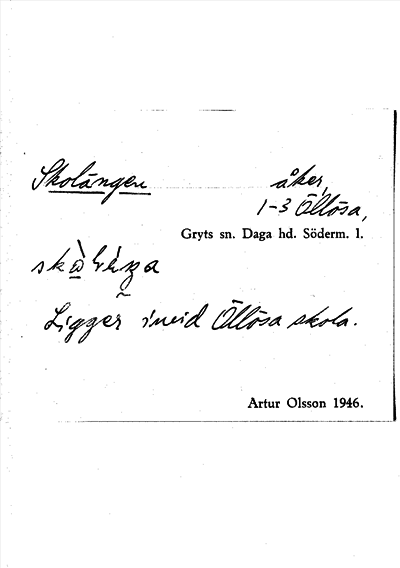 Skolängen åker,
1-3 Öllösa,
Gryts sn. Daga hd. Söderm. l.
Ligger invid Öllösa skola.
Artur Olsson 1946.